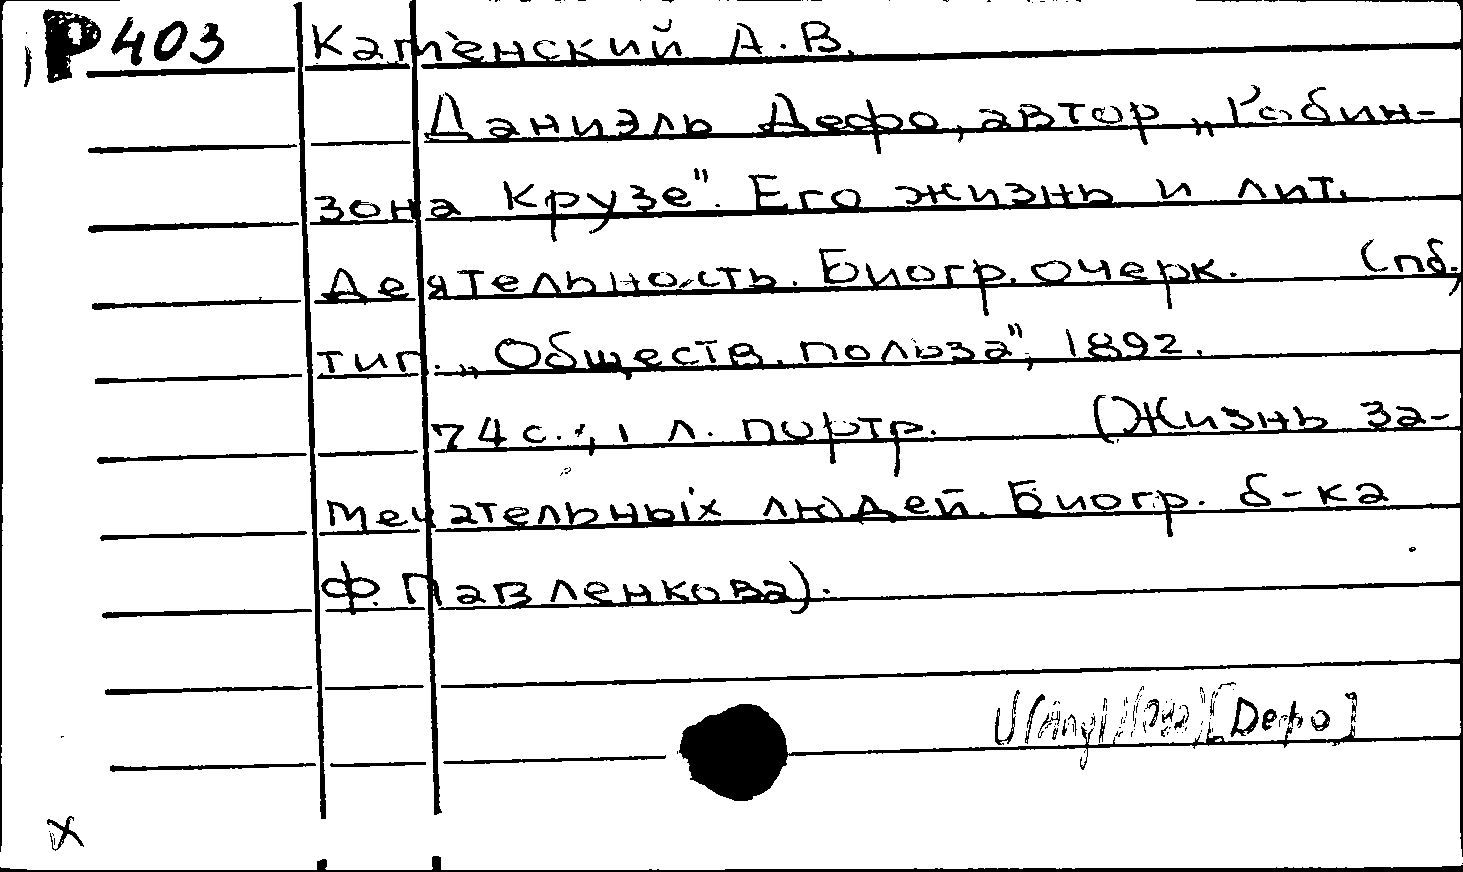 Р403
Каменский А.В.
Даниэль Дефо, автор „Робин-
зона Крузе". Его жизнь и лит.
деятельность. Биогр. очерк. Спб,
тип. „Обществ. польза", 1892.
74 с.; 1 л. портр. (Жизнь за-
мечательных людей. Биогр. б-ка
Ф. Павленкова).
[Дефо]
x